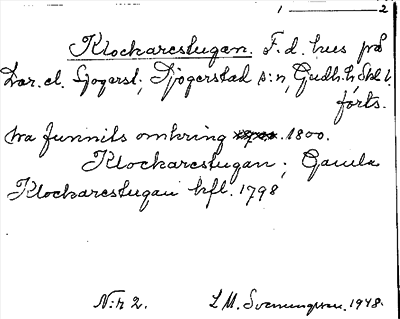 1 — 2
Klockarestugan. F. d. hus på
Sjogerstad s:n, Gudh. h, Skbl.
forts.
ha funnits omkring 1800.
Klockarestugan; Gamla
Klockarestugan hfl. 1798
N:r 2. L M. Svenungsson. 1948.